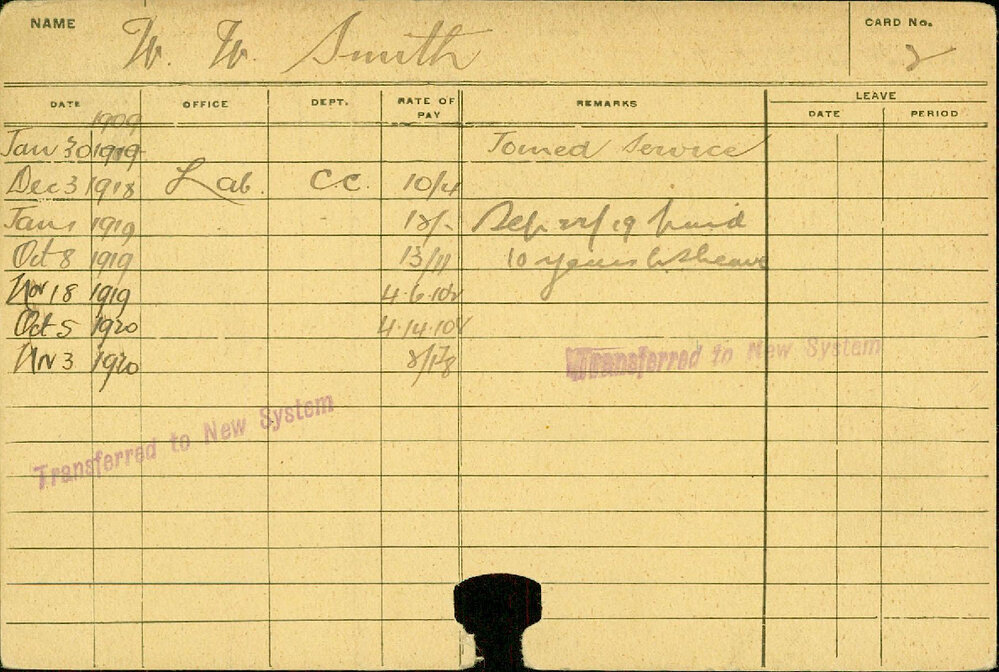 NAME W. W. Smith CARD No. 2
DATE OFFICE DEPT. RATE OF PAY REMARKS LEAVE
DATE PERIOD
1909
Jan 30 1919 Joined Service
Dec 3 1918 Lab. C.C. 10/4
Jan 1 1919 12/- Sep 22/19 paid
Oct 8 1919 13/11 10 years
Nov 18 1919 4.6.10
Oct 5 1920 4.14.10
Nv 3 1920
Transferred to New System
Transferred to New System